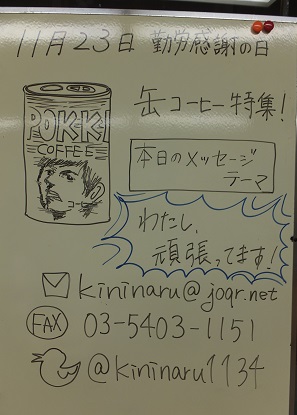 11月23日 勤労感謝の日
缶コーヒー特集!
POKKI
COFFEE
本日のメッセージ
テーマ
わたし、
頑張ってます!
kininaru@joqr.net
FAX 03-5403-1151
@kininaru1134